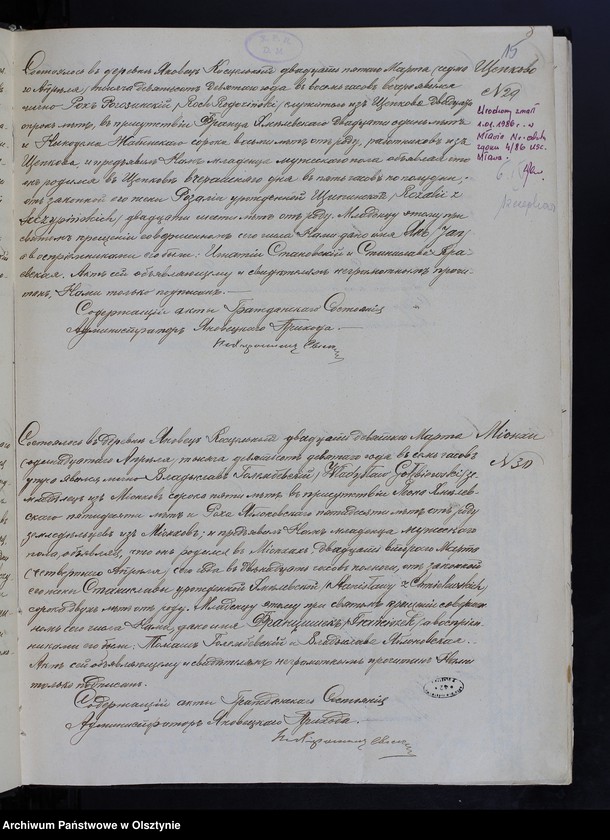 15
Состоялось въ деревнѣ Яновецъ Косцельный двадцать пятаго Марта (седьмого
Апрѣля) тысяча девятьсотъ девятаго года въ восемь часовъ вечера явился
лично Рохъ /Roch
прокъ лѣтъ, въ присутствіи Франца Хмѣлевскаго двадцати одного лѣтъ
и Никодима сорока восьми лѣтъ отъ роду, работниковъ изъ
Щепкова и предъявилъ Намъ младенца мужескаго пола объявляя что
онъ родился въ Щепковѣ вчерашняго дня въ пять часовъ по полудни,
отъ законной его жены Розаліи урожденной /Rozalii z
двадцати шести лѣтъ отъ роду. Младенцу этому при
святомъ крещеніи совершенномъ сего числа Нами дано имя Янъ /Jan/
а воспріемниками его были: Игнатій Становскій и Станислава
Актъ сей объявляющему и свидѣтелямъ неграмотнымъ прочи-
танъ, Нами только подписанъ.
Содержащій акты Гражданскаго Состоянія
Администраторъ Яновецкаго Прихода.
Щепково
№ 29
Urodzony zmarł
1.01.1986 r. w
zgonu 4/86 USC.
Mława
Состоялось въ деревнѣ Яновецъ Косцельный двадцать девятаго Марта
(одиннадцатаго Апрѣля) тысяча девятьсотъ девятаго года въ семь часовъ
утра явился лично Владиславъ Голембевскій /Władysław Gołębiewski/ зе-
мледѣлецъ изъ Міонковъ сорока пяти лѣтъ въ присутствіи Леона Хмѣлев-
скаго пятидесяти лѣтъ и Роха пятидесяти лѣтъ отъ роду
земледѣльцевъ изъ Міонковъ; и предъявилъ Намъ младенца мужескаго
пола, объявляя, что онъ родился въ Міонкахъ двадцать второго Марта
(четвертаго Апрѣля) сего года въ двѣнадцать часовъ полночи, отъ законной
его жены Станиславы урожденной Хмѣлевской /Stanisławy z Chmielewskich/
сорока двухъ лѣтъ отъ роду. Младенцу этому при святомъ крещеніи совершен-
номъ сего числа Нами, дано имя Францишекъ /Franciszek/ а воспріем-
никами его были: Томашъ Голембевскій и Владислава
Актъ сей объявляющему и свидѣтелямъ неграмотнымъ прочитанъ Нами
только подписанъ.
Содержащій акты Гражданскаго Состоянія
Администраторъ Яновецкаго Прихода.
Міонки
№ 30
Archiwum Państwowe w Olsztynie